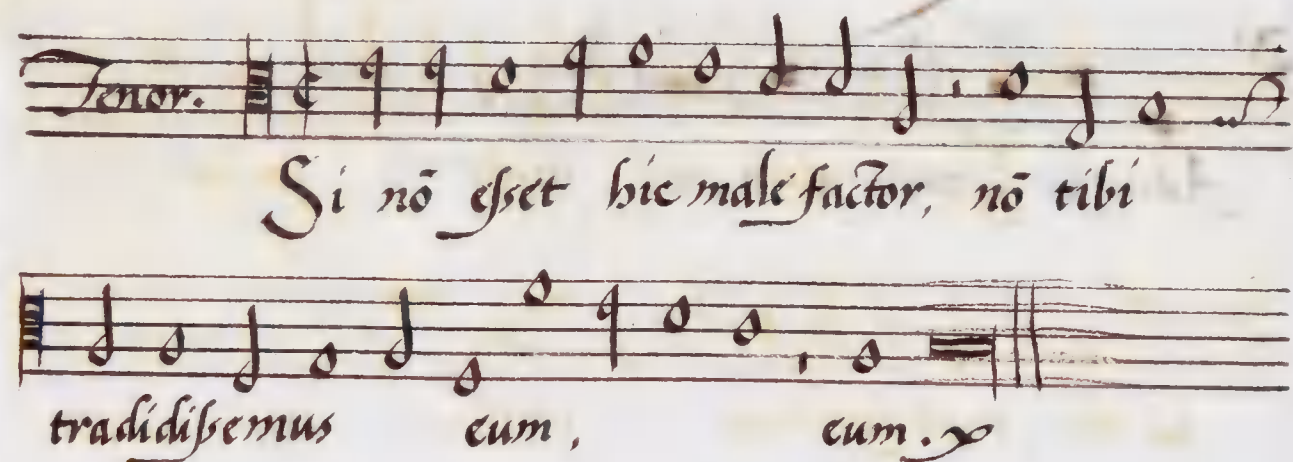 Tenor.
Si nō eſset hic malefactor, nō tibi
tradidiſsemus eum, eum.